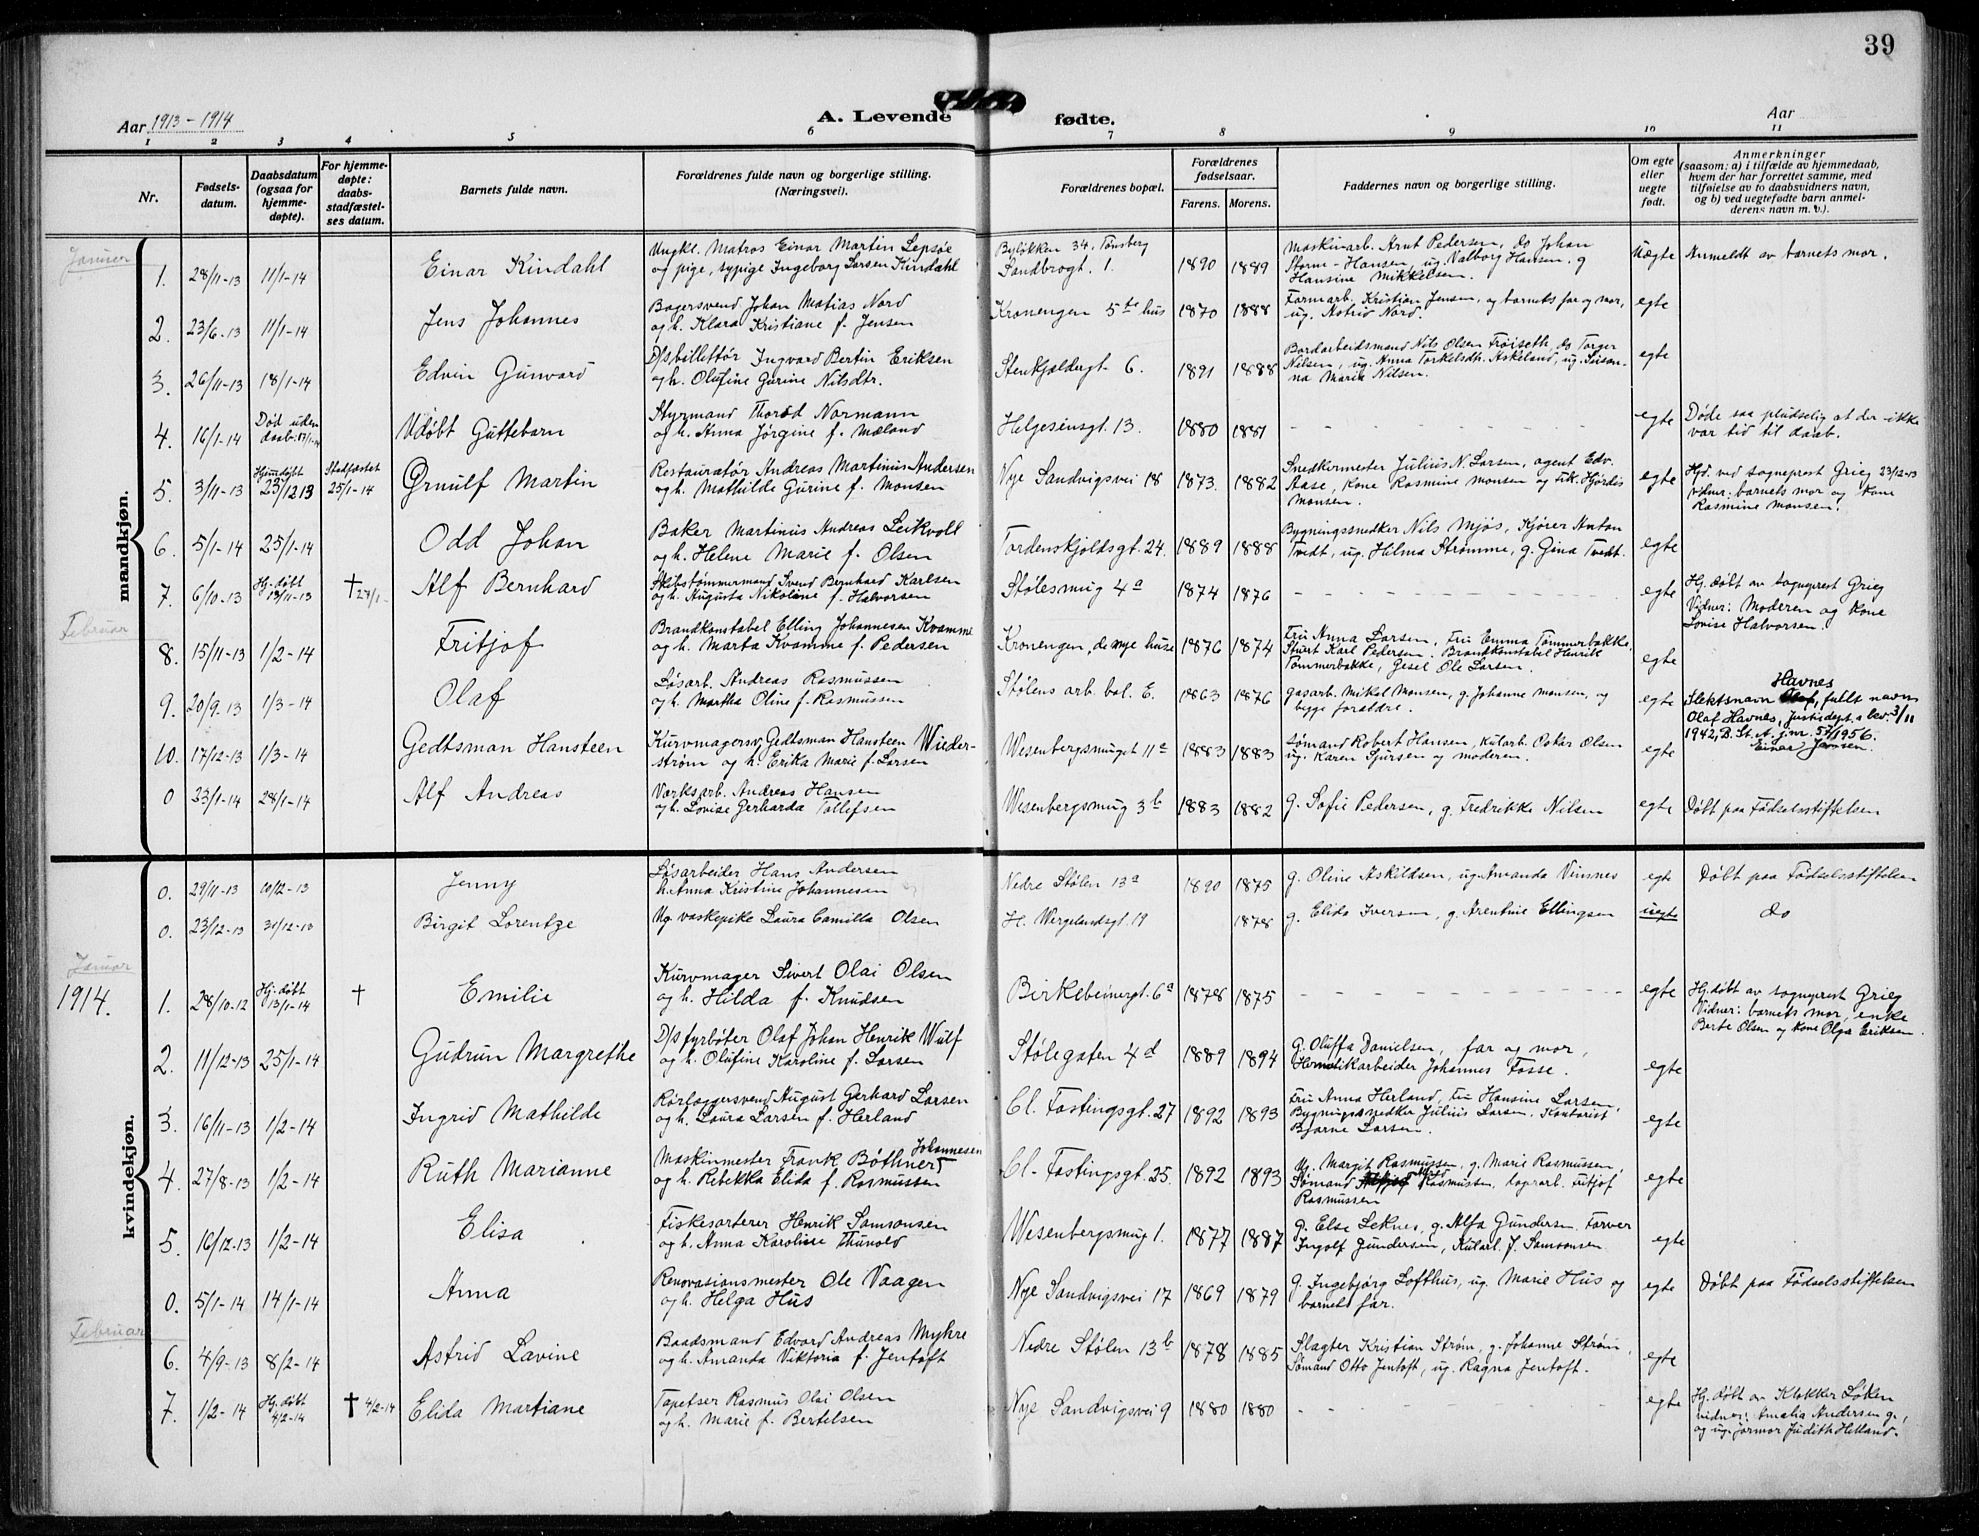 39
Aar 1913 - 1914
A. Levende fødte.
Aar
1 2 3 4 5 6 7 8 9 10 11
Nr.
Fødsels-
datum.
Daabsdatum
(ogsaa for
hjemme-
døpte).
For hjemme-
døpte:
daabs-
stadfæstel-
ses datum.
Barnets fulde navn.
Forældrenes fulde navn og borgerlige stilling.
(Næringsvei).
Forældrenes bopæl.
Forældrenes
fødselsaar.
Farens. Morens.
Faddernes navn og borgerlige stilling.
Om egte
eller
uegte
født.
Anmerkninger
(saasom: a) i tilfælde av hjemmedaab,
hvem der har forrettet samme, med
tilføielse av to daabsvidners navn,
og b) ved uegtefødte barn anmel-
derens navn m. v.).
mandkjøn.
Januar
1. 28/11-13 11/1-14 Einar Kindahl
Ungkl. Matros Einar Martin Lepsøe
og pige, sypige Ingeborg Larsen Kindahl
Byløkken 34, Tønsberg
Sandbrogt. 1. 1890 1889
Maskinarb. Arnt Pedersen, do Johan
Storm-Hansen, ug. Valborg Hansen, g
Hansine Mikkelsen.
Uægte Anmeldt av barnets mor.
2. 23/6-13 11/1-14 Jens Johannes
Bagersvend Johan Matias Nord
og h. Klara Kristiane f. Jensen
Kronengen 5te hus 1870 1888
Formarb. Kristian Jensen, og barnets far og mor,
ug. Astrid Nord.
egte
3. 26/11-13 18/1-14 Edvin Gunvard
D/s billettør Ingvard Bertin Eriksen
og h. Olufine Gurine Nilsdtr.
Stenkjældergt 6. 1891 1888
Bordarbeidsmand Nils Olsen Troiseth, do Torger
Nilsen, ug. Anna Torkelsdtr. Askeland, ug. Susan-
na Marie Nilsen.
egte
4. 16/1-14 Død uden
daab: 17/1-14
Udøbt Guttebarn
Styrmand Thorød Normann
og h. Anna Jørgine f. Mæland
Helgesensgt. 13. 1880 1881
egte Døde saa pludselig at der ikke
var tid til daab.
5. 3/11-13 Hjemdøbt
23/12 13
Stadfæstet
25/1-14
Ørnulf Martin
Restauratør Andreas Martinus Andersen
og h. Mathilde Gurine f. Monsen
Nye Sandvigsvei 18 1873. 1882
Snedkermester Julius N. Larsen, agent Edv.
Aase, kone Rasmine Monsen og frk. Hjørdis
Monsen.
egte Hjd. ved sogneprest Grieg 23/12-13
vidner: barnets mor og kone
Rasmine Monsen.
6. 5/1-14 25/1-14 Odd Johan
Baker Martinus Andreas Leikvoll
og h. Helene Marie f. Olsen
Tordenskjoldsgt. 24. 1889 1888
Bygningssnedker Nils Mjøs, Kjører Anton
Tvedt, ug. Hilma Strømme, g. Gina Tvedt.
egte
7. 6/10-13 Hj. døbt
13/11-13
† 27/1- Alf Bernhard
Skibstømmermand Svend Bernhard Karlsen
og h. Augusta Nikoline f. Halvorsen
Stølesmug 4a 1874 1876
egte Hj. døbt av sogneprest Grieg
Vidner: Moderen og kone
Lovise Halvorsen.
Februar
8. 15/11-13 1/2-14 Fritjof
Brandkonstabel Elling Johannesen Kvamme
og h. Marta Kvamme f. Pedersen
Kronengen, de nye huse 1876 1874
Fru Anna Larsen, Fru Emma Tømmerbakke,
Stuert Karl Pedersen. Brandkonstabel Henrik
Tømmerbakke, Gesel Ole Larsen.
egte
9. 20/9-13 1/3-14 Olaf
Løsarb. Andreas Rasmussen
og h. Martha Oline f. Rasmussen
Stølens arb. bol. E. 1863 1876
Gasarb. Mikal Monsen, g. Johanne Monsen, og
begge forældre.
egte Havnes
Slektsnavn Olaf, fullt navn
Olaf Havnes, Justisdept.s bev. 3/11
1942, B. St. A. j.nr. 54/1956.
Einar Jansen.
10. 17/12-13 1/3-14 Gedtsman Hansteen
Kurvmagersv. Gedtsman Hansteen Wieder-
strøm og h. Erika Marie f. Larsen
Wesenbergsmuget 11a 1883 1883
Sømand Robert Hansen, kularb. Oskar Olsen
ug. Karen Sjursen og moderen.
egte
0 23/1-14 28/1-14 Alf Andreas
Værksarb. Andreas Hansen
og h. Lovise Gerharda Tollefsen
Wesenbergsmug 3b 1883 1882
g. Sofie Pedersen, g. Fredrikke Nilsen
egte Døbt paa Fødselsstiftelsen
kvindekjøn.
0. 29/11-13 10/12-13 Jenny
Løsarbeider Hans Andersen
h. Anna Kristine Johannesen
Nedre Stølen 13a 1890 1875
g. Oline Askildsen, ug. Amanda Vinsnes
egte Døbt paa Fødselsstiftelsen
0. 23/12-13 31/12-13 Birgit Lorentze
Ug vaskepike Laura Camilla Olsen
H. Wergelandsgt. 19 1878
g. Elida Iversen, g. Arentine Ellingsen
uegte do
Januar
1914.
1. 28/10-12 Hj. døbt
13/1-14
† Emilie
Kurvmager Sivert Olai Olsen
og h. Hilda f. Knudsen
Birkebeinergt. 6a 1878 1875
egte Hj. døbt av sogneprest Grieg
Vidner: barnets mor, enke
Berte Olsen og kone Olga Eriksen.
2. 11/12-13 25/1-14 Gudrun Margrethe
D/s fyrbøter Olaf Johan Henrik Wulf
og h. Olufine Karoline f. Larsen
Stølegaten 4d 1889 1894
G. Oluffa Danielsen, far og mor,
Hermetikarbeider Johannes Fosse.
egte
3. 16/11-13 1/2-14 Ingrid Mathilde
Rørlæggersvend August Gerhard Larsen
og h. Laura Larsen f. Herland
Cl. Fastingsgt. 27 1892 1893
Fru Anna Herland, fru Hansine Larsen,
Bygningssnedker Julius Larsen. Kontorist
Bjarne Larsen.
egte
4. 27/8-13 1/2-14 Ruth Marianne
Maskinmester Frank Bøthner Johannesen
og h. Rebekka Elida f. Rasmussen
Cl. Fastingsgt. 25. 1892 1893
U. Margit Rasmussen, g. Marie Rasmussen,
Sømand Rasmussen, Fritjof
Rasmussen
egte
5. 16/12-13 1/2-14 Elisa
Fiskesorterer Henrik Samsonsen
og h. Anna Karoline Thunold
Wesenbergsmug 1. 1877 1887
g. Else Leknes, g. Alfa Gundersen. Farver
Ingolf Gundersen, Kularb. J. Samsonsen
egte
0. 5/1-14 14/1-14 Anna
Renovasionsmester Ole Vaagen
og h. Helga Hus
Nye Sandvigsvei 17 1869 1879
g. Ingebjørg Lofthus, ug. Marie Hus og
barnets far.
egte Døbt paa Fødselsstiftelsen
Februar
6. 4/9-13 8/2-14 Astrid Lavine
Baadsmand Edvard Andreas Myhre
og h. Amanda Viktoria f. Jentoft
Nedre Stølen 13b 1878 1885
Slagter Kristian Strøm, g. Johanne Strøm,
Sømand Otto Jentoft, ug. Ragna Jentoft.
egte
7. 1/2-14 Hj. døbt
4/2-14
† 4/2-14 Elida Martiane
Tapetser Rasmus Olai Olsen
og h. Marie f. Bertelsen
Nye Sandvigsvei 9 1880 1880
egte Hj. døbt av Klokker Løken
vidner: Amalia Andersen g.,
og ug. jormor Judith Helland.